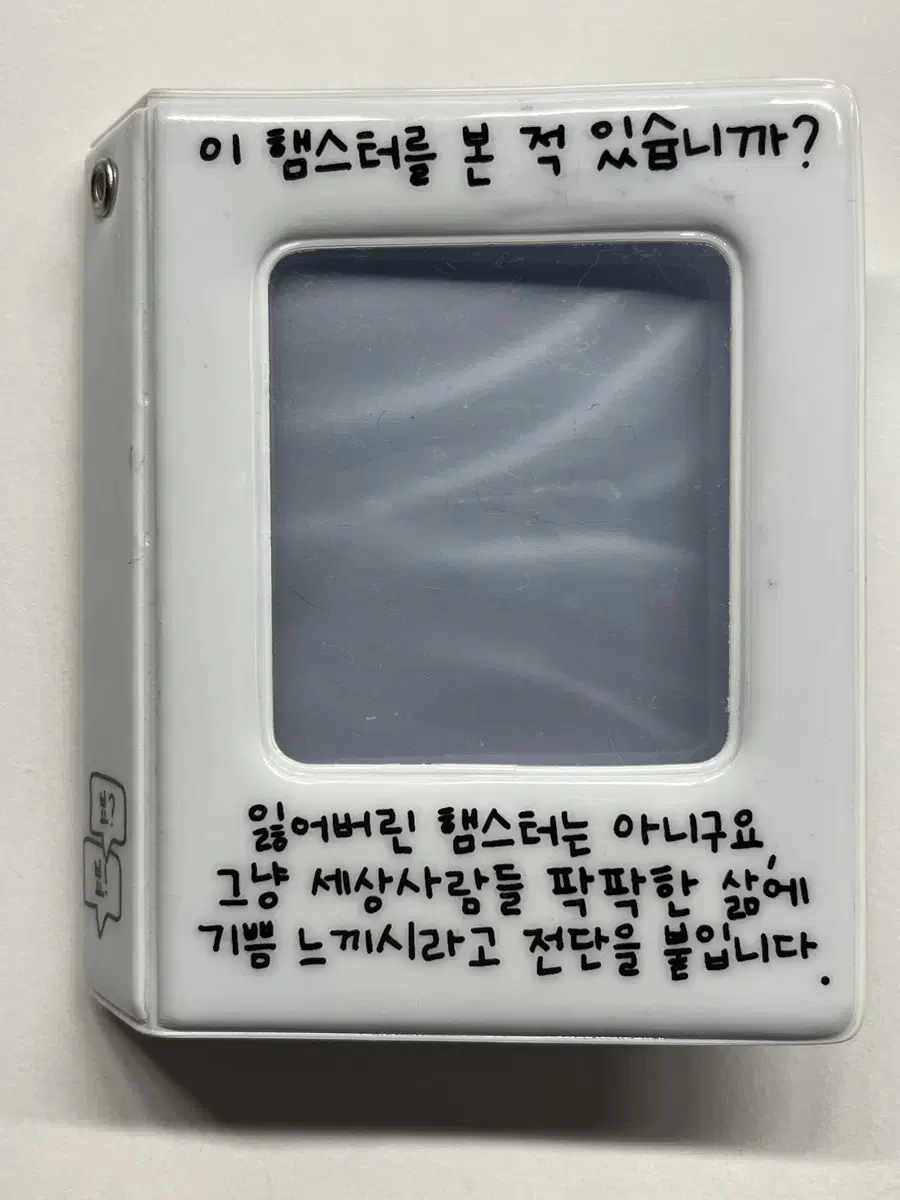 이 햄스터를 본 적 있습니까?
잃어버린 햄스터는 아니구요,
그냥 세상사람들 팍팍한 삶에
기쁨 느끼시라고 전단을 붙입니다.